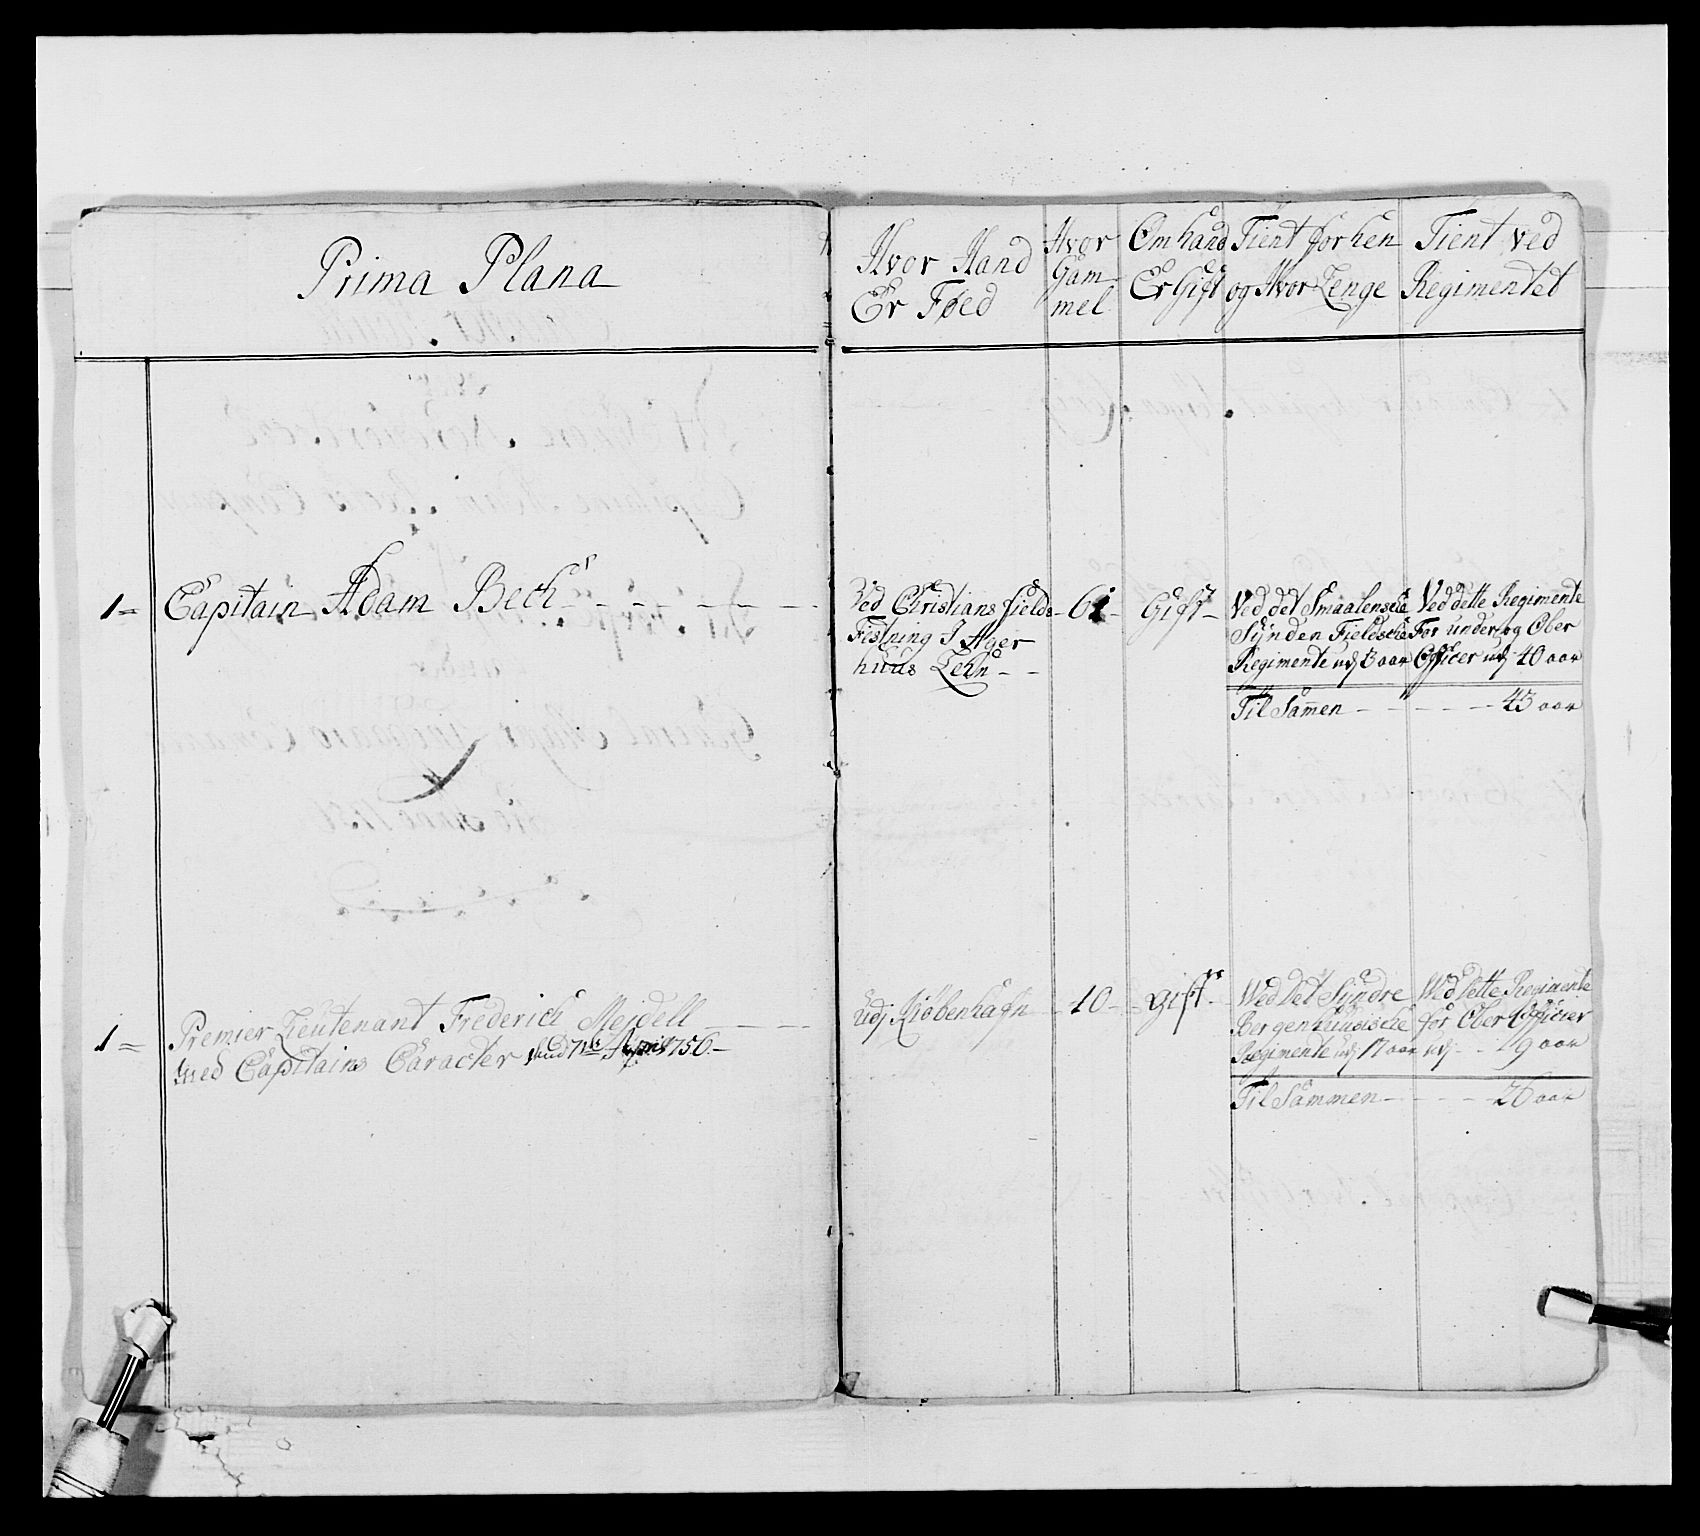 Prima Plana
Hvor Hand
Er Føed
Hvor
Gam-
mel
Om hand
Er Gift
Tient forhen
og Hvor Lenge
Tient ved
Regimentet
1 = Capitain Adam Bech
Ved Christians fields
Festning I Ager
huus Lehn
61
Gift
Ved det Smaalensche
Synden Fieldsche
Regimente udj 3 aar
Ved dette Regimente
For under og Ober
Officer udj 40 aar
Til Samen 43 aar
1 = Premier Leutenant Frederich Mejdell
med Capitains Caracter 1756
udj Kiøbenhafn
40
Gift
Wed det Syndre
Bergenhuusische
Regimente udj 17 aar
Wed dette Regimente
for Ober Officier
udj 9 aar
Til Sammen 26 aar